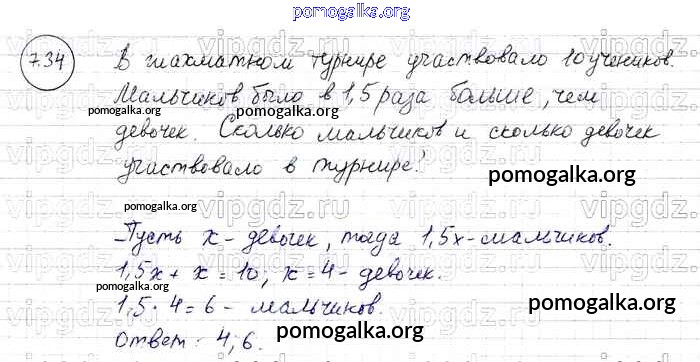 pomogalka.org
734 В шахматном турнире участвовало 10 учеников.
Мальчиков было в 1,5 раза больше, чем
девочек. Сколько мальчиков и сколько девочек
участвовало в турнире?
pomogalka.org
pomogalka.org
pomogalka.org
Пусть x - девочек, тогда 1,5x - мальчиков.
1,5x + x = 10; x = 4 - девочек.
pomogalka.org
1,5 · 4 = 6 - мальчиков.
Ответ: 4; 6.
pomogalka.org
pomogalka.org
vipgdz.ru